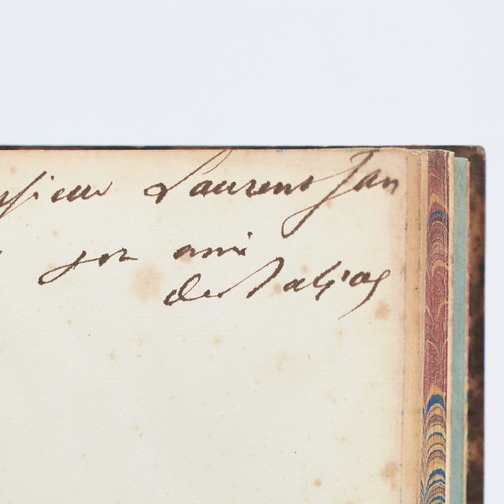 nsieur Laurent Jan
son ami
de Balzac